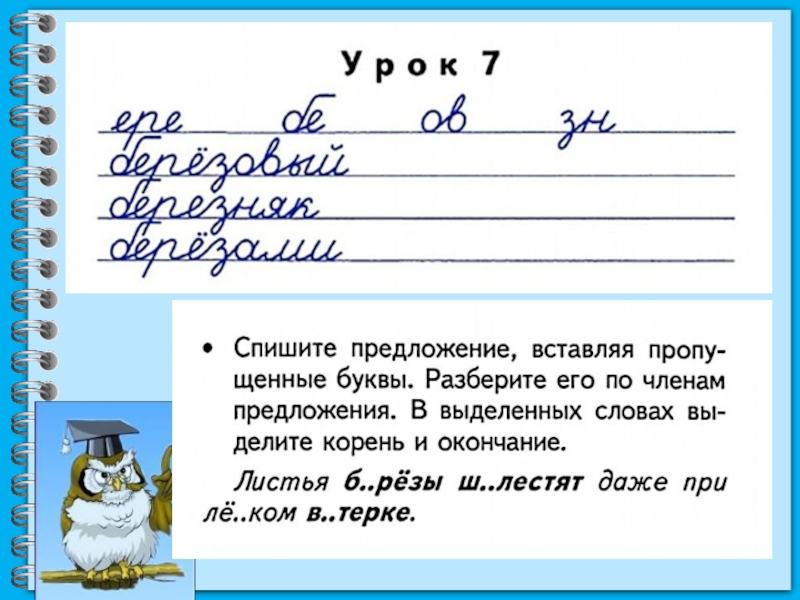 Урок 7
ере бе ов зн
берёзовый
березняк
берёзами
• Спишите предложение, вставляя пропу-
щенные буквы. Разберите его по членам
предложения. В выделенных словах вы-
делите корень и окончание.
Листья б..рёзы ш..лестят даже при
лё..ком в..терке.